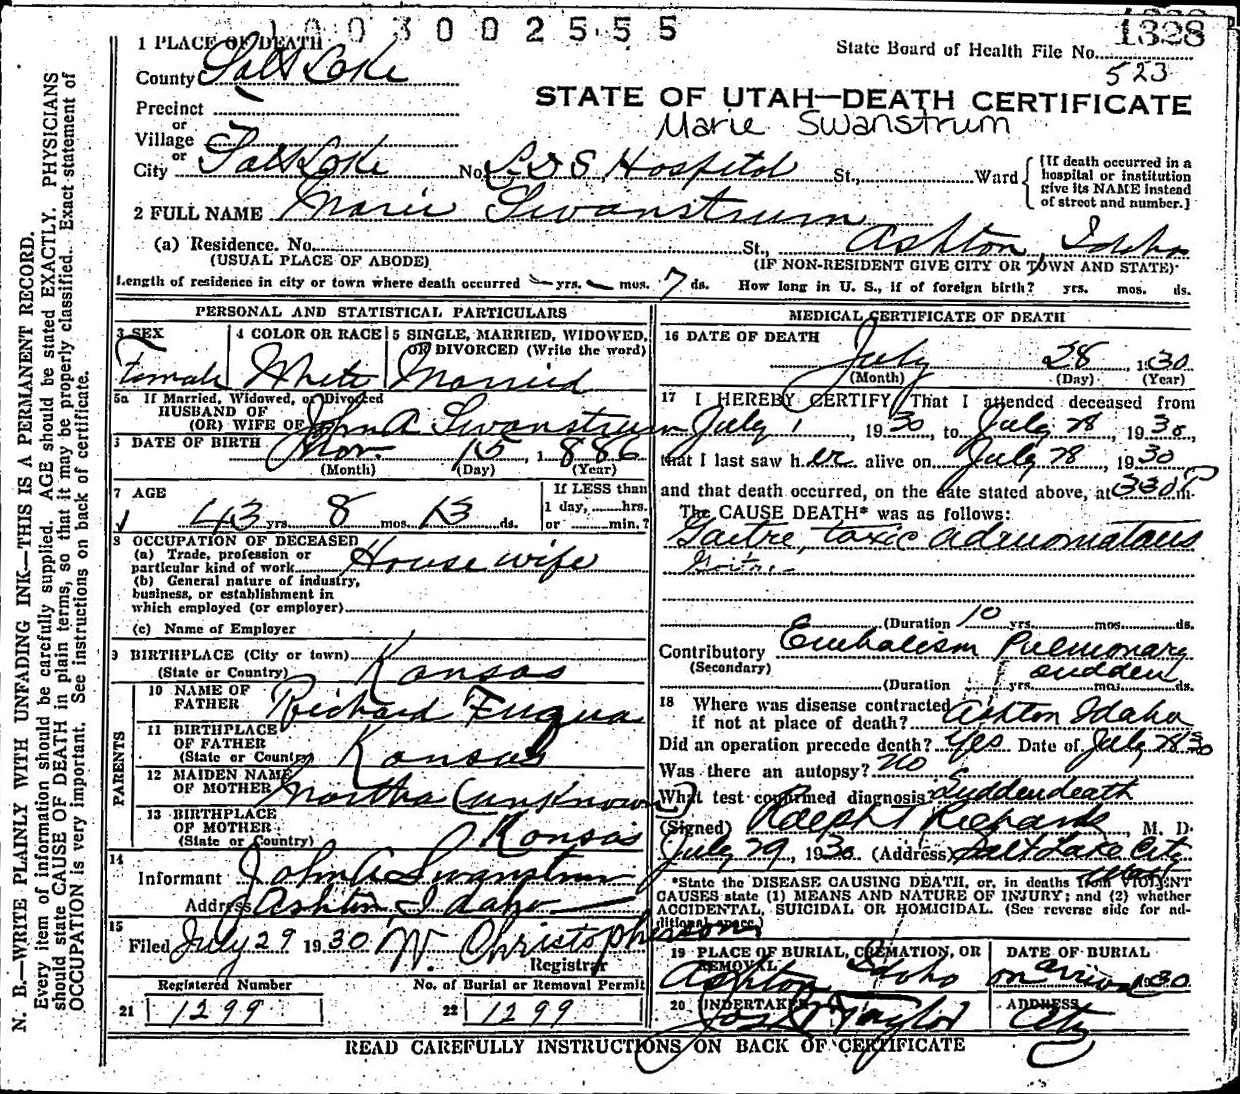 1003002555
1328
State Board of Health File No.
523
1 PLACE OF DEATH
County Salt Lake
Precinct
or
Village
or
City Salt Lake No. L D S Hospital St., Ward
[If death occurred in a
hospital or institution
give its NAME instead
of street and number.]
STATE OF UTAH—DEATH CERTIFICATE
Marie Swanstrum
2 FULL NAME Marie Swanstrum
(a) Residence. No. St., Ashton, Idaho
(USUAL PLACE OF ABODE) (IF NON-RESIDENT GIVE CITY OR TOWN AND STATE)
Length of residence in city or town where death occurred — yrs. — mos. 7 ds. How long in U. S., if of foreign birth? yrs. mos. ds.
PERSONAL AND STATISTICAL PARTICULARS
3 SEX
Female
4 COLOR OR RACE
White
5 SINGLE, MARRIED, WIDOWED,
OR DIVORCED (Write the word)
Married
5a If Married, Widowed, or Divorced
HUSBAND OF
(OR) WIFE OF John A Swanstrum
6 DATE OF BIRTH Nov. 15, 1886
(Month) (Day) (Year)
7 AGE
43 yrs. 8 mos. 13 ds.
If LESS than
1 day, hrs.
or min.?
8 OCCUPATION OF DECEASED
(a) Trade, profession or
particular kind of work House wife
(b) General nature of industry,
business, or establishment in
which employed (or employer)
(c) Name of Employer
9 BIRTHPLACE (City or town)
(State or Country) Kansas
PARENTS
10 NAME OF
FATHER Richard Fuqua
11 BIRTHPLACE
OF FATHER
(State or Country) Kansas
12 MAIDEN NAME
OF MOTHER Martha (unknown)
13 BIRTHPLACE
OF MOTHER
(State or Country) Kansas
14
Informant John A Swanstrum
Address Ashton Idaho
15
Filed July 29 1930 W. Christopherson
Registrar
Registered Number No. of Burial or Removal Permit
21 1299 22 1299
MEDICAL CERTIFICATE OF DEATH
16 DATE OF DEATH
July 28, 1930
(Month) (Day) (Year)
17 I HEREBY CERTIFY, That I attended deceased from
July 1, 1930, to July 28, 1930,
that I last saw her alive on July 28, 1930
and that death occurred, on the date stated above, at 330 P m.
The CAUSE DEATH* was as follows:
Goitre, toxic adenomatous
Goitre
(Duration 10 yrs. mos. ds.
Contributory Embolism Pulmonary
(Secondary) sudden
(Duration yrs. mos. ds.
18 Where was disease contracted
if not at place of death? Ashton Idaho
Did an operation precede death? Yes Date of July 28 30
Was there an autopsy? no
What test confirmed diagnosis Sudden death
(Signed) Ralph T Richards, M. D.
July 29, 1930 (Address) Salt Lake City
Utah
*State the DISEASE CAUSING DEATH, or, in deaths from VIOLENT
CAUSES state (1) MEANS AND NATURE OF INJURY; and (2) whether
ACCIDENTAL, SUICIDAL OR HOMICIDAL. (See reverse side for ad-
ditional space.)
19 PLACE OF BURIAL, CREMATION, OR
REMOVAL
Ashton Idaho
DATE OF BURIAL
on arrival 1930
20 UNDERTAKER
Jos Taylor
ADDRESS
City
READ CAREFULLY INSTRUCTIONS ON BACK OF CERTIFICATE
N. B.—WRITE PLAINLY WITH UNFADING INK—THIS IS A PERMANENT RECORD.
Every item of information should be carefully supplied. AGE should be stated EXACTLY. PHYSICIANS
should state CAUSE OF DEATH in plain terms, so that it may be properly classified. Exact statement of
OCCUPATION is very important. See instructions on back of certificate.